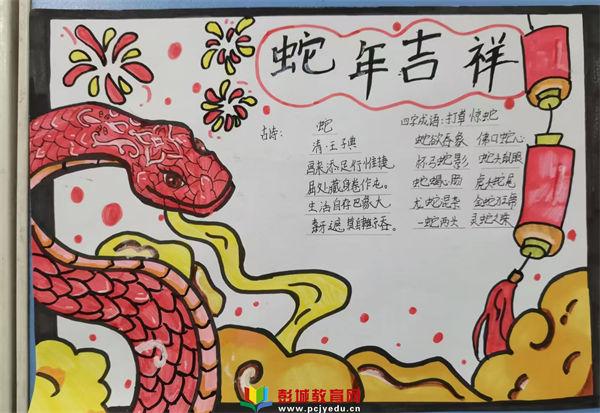 蛇年吉祥
古诗: 蛇
清:王子
来添足行惟捷
屈处藏身卷作丸。
生活自存巴
四字成语:打草惊蛇
蛇欲吞象 佛口蛇心
杯弓蛇影 蛇头鼠眼
蛇蝎心肠 虎头蛇尾
龙蛇混杂 金蛇狂舞
一蛇两头 灵蛇之珠
彭城教育网
www.pcjyedu.cn